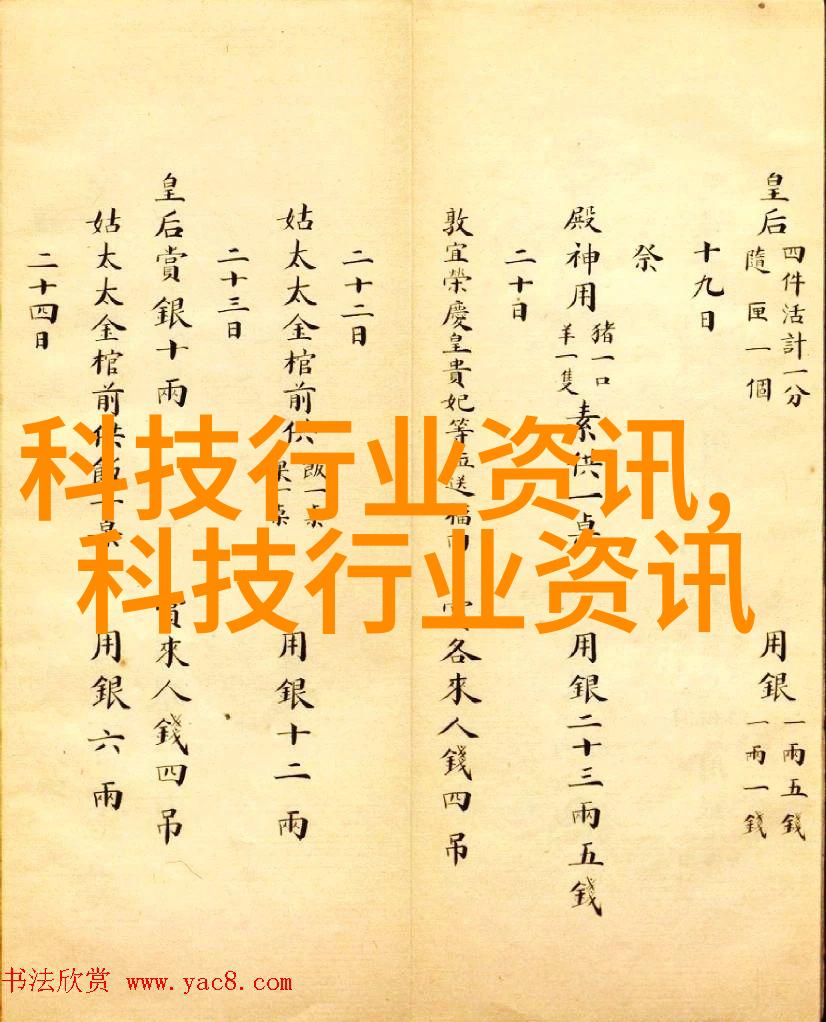 皇后 四件活計一分 隨匣一個 用銀 一兩五錢 一兩一錢
十九日
祭
殿神用 豬一口 羊一隻 素供一桌 用銀二十三兩五錢
二十日
敦宜榮慶皇貴妃等位送福肉 賞各來人錢四吊
二十二日
姑太太金棺前供 飯一桌 果一桌 用銀十二兩
二十三日
皇后賞銀十兩 賞來人錢四吊
姑太太金棺前供飯一桌 用銀六兩
二十四日
科技行业资讯,
科技行业资讯
书法欣赏 www.yac8.com